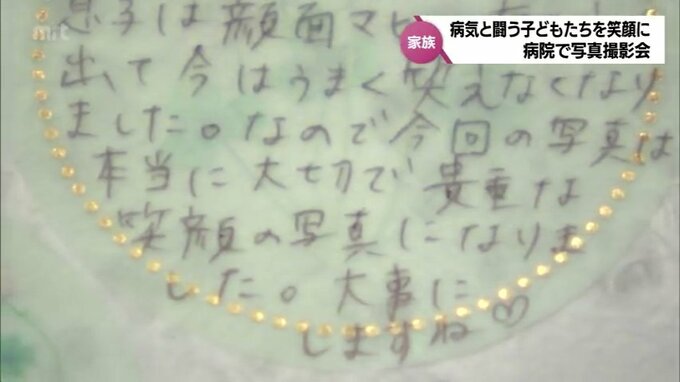 mit
家族
病気と闘う子どもたちを笑顔に
病院で写真撮影会
息子は顔面マヒ
出て今はうまく笑えなくなり
ました。なので今回の写真は
本当に大切で貴重な
笑顔の写真になりま
した。大事に
しますね♡